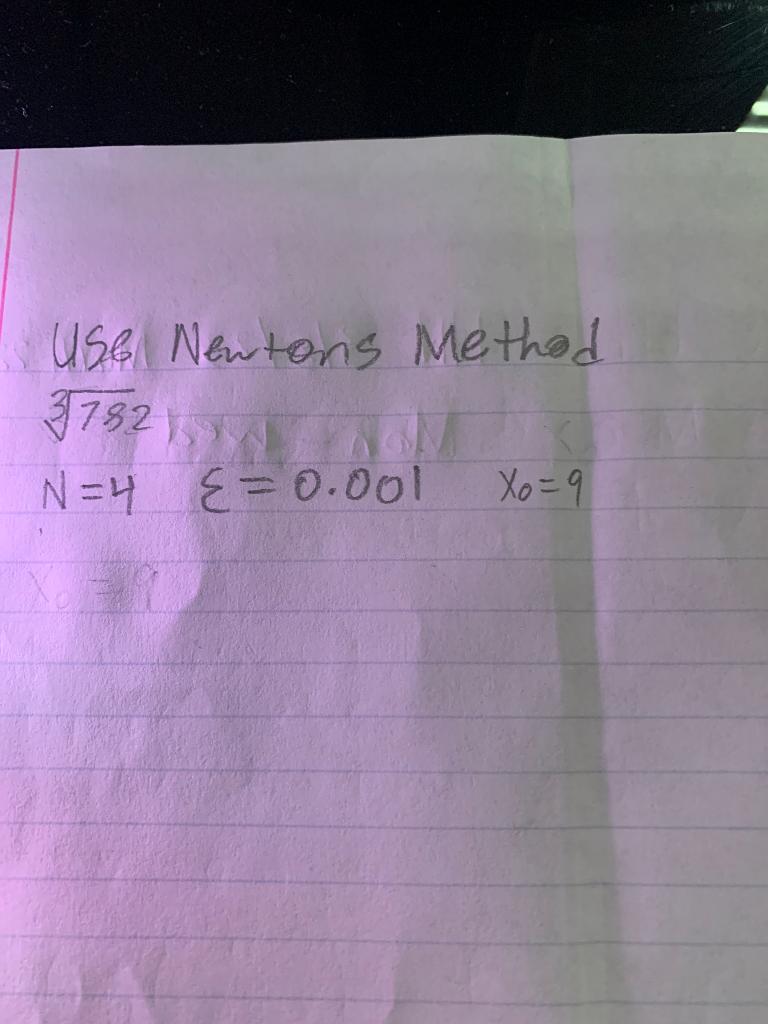 Use Newtons Method
∛782
N=4 ε=0.001 X₀=9
X₀=9